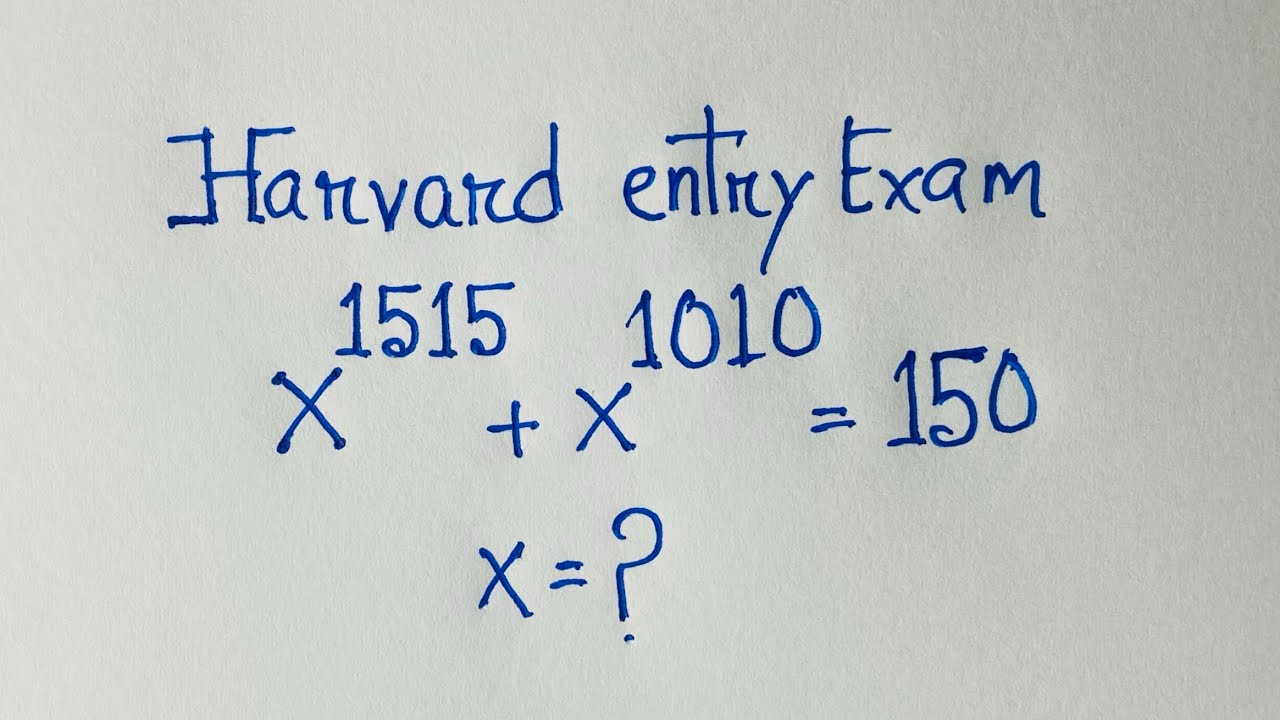 Harvard entry Exam
x¹⁵¹⁵ + x¹⁰¹⁰ = 150
x = ?